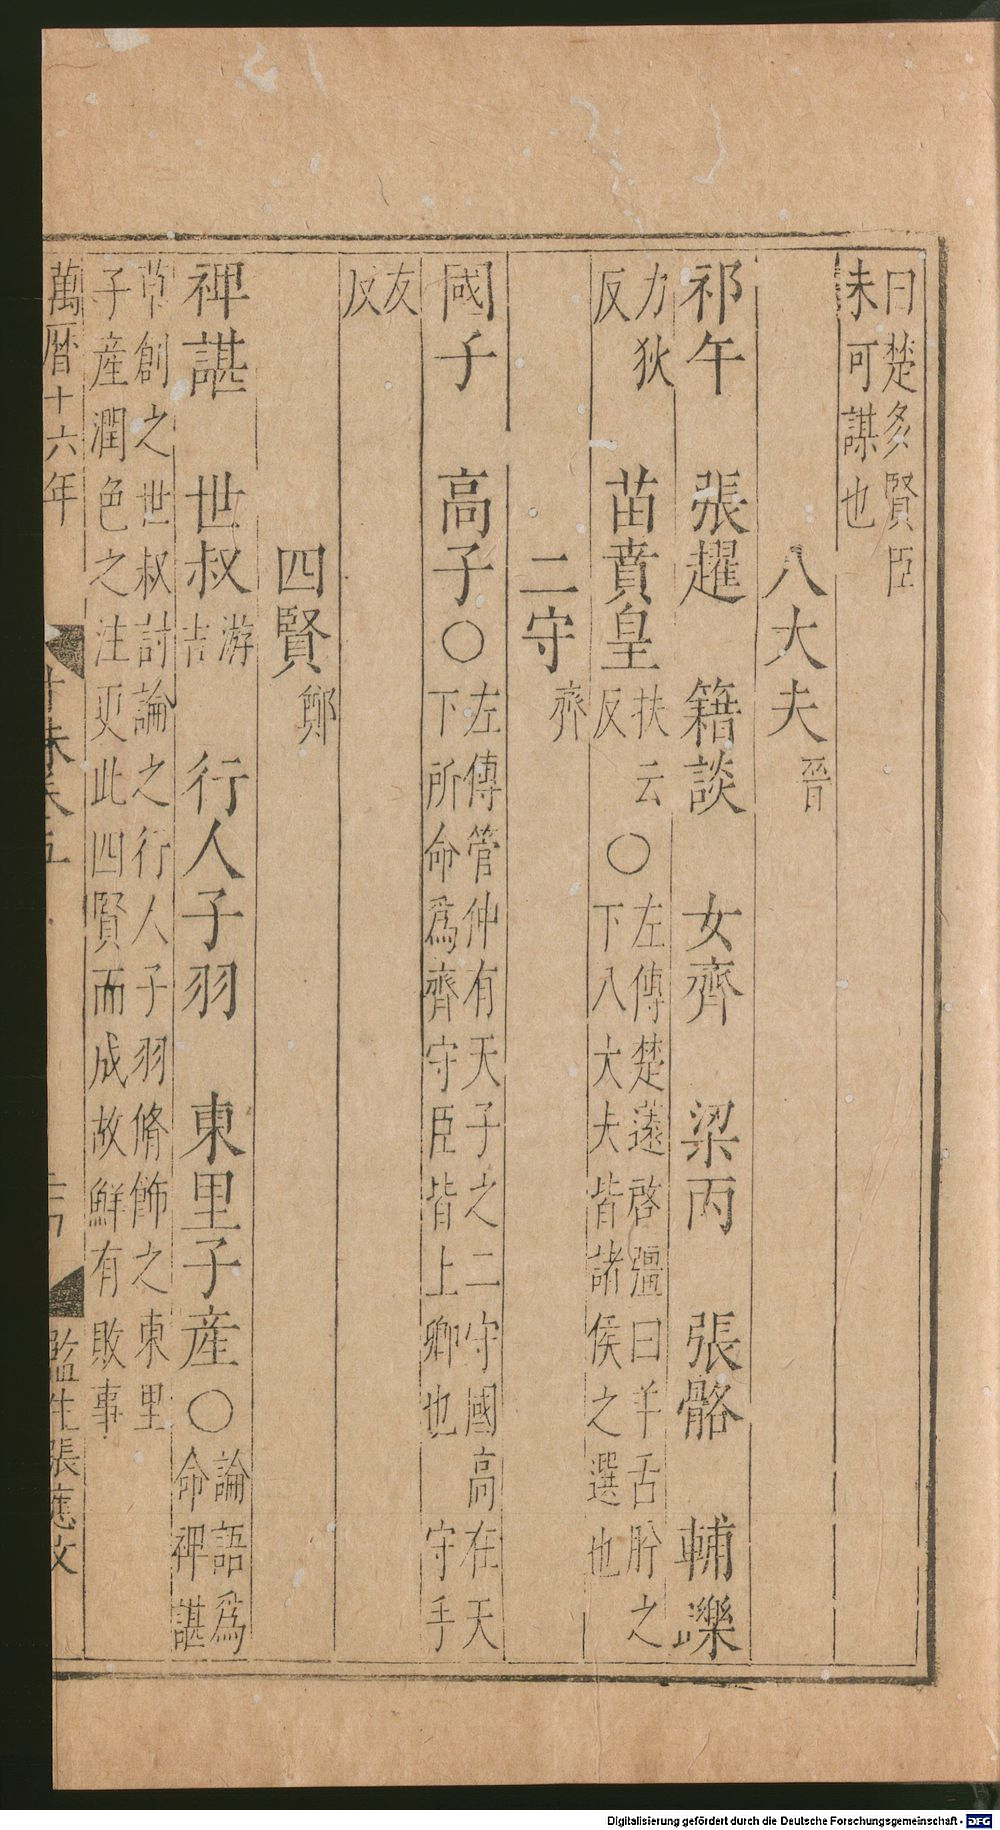 曰楚多賢臣
未可謀也
八大夫晉
祁午　張趯　籍談　女齊　梁丙　張骼　輔躒
力狄
反
苗賁皇
扶云
反
○
左傳楚薳啓彊曰羊舌肸之
下八大夫皆諸侯之選也
二守齊
國子　高子○
左傳管仲有天子之二守國高在天
下所命爲齊守臣皆上卿也　守手
友
反
四賢鄭
裨諶　世叔
游
吉
行人子羽　東里子產○
論語爲
命裨諶
草創之世叔討論之行人子羽脩飾之東里
子產潤色之注更此四賢而成故鮮有敗事
萬曆十六年
卷五
監生張應文
Digitalisierung gefördert durch die Deutsche Forschungsgemeinschaft - DFG